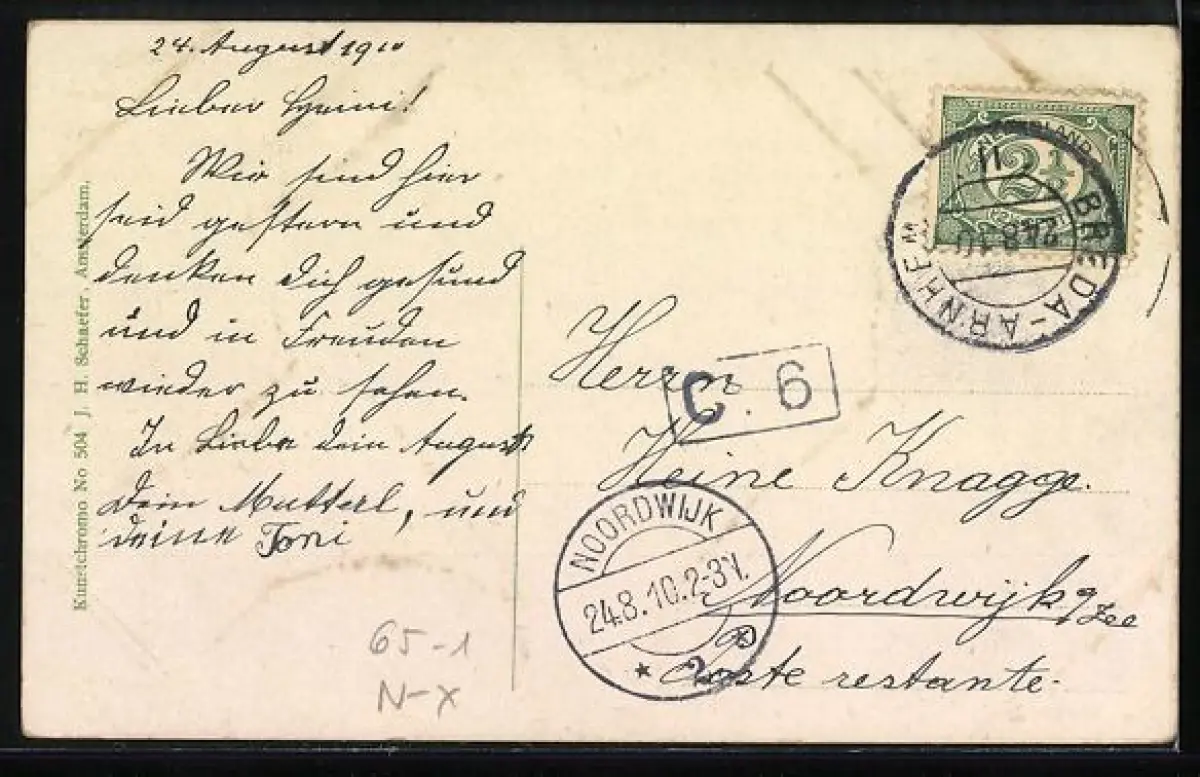 24. August 1910
Lieber Heini!
Wir sind hier
seid gestern und
denken dich gesund
und in Freuden
wieder zu sehen.
In Liebe dein August
dein Mutterl, und
deine Toni
Kunstchromo No 504 J. H. Schaefer, Amsterdam.
2½
BREDA-ARNHEM
24.8.10
II
Herrn
C. 6
Heine Knagge.
Noordwijk a/Zee
Poste restante.
NOORDWIJK
24.8.10.2-3V.
65-1
N-X